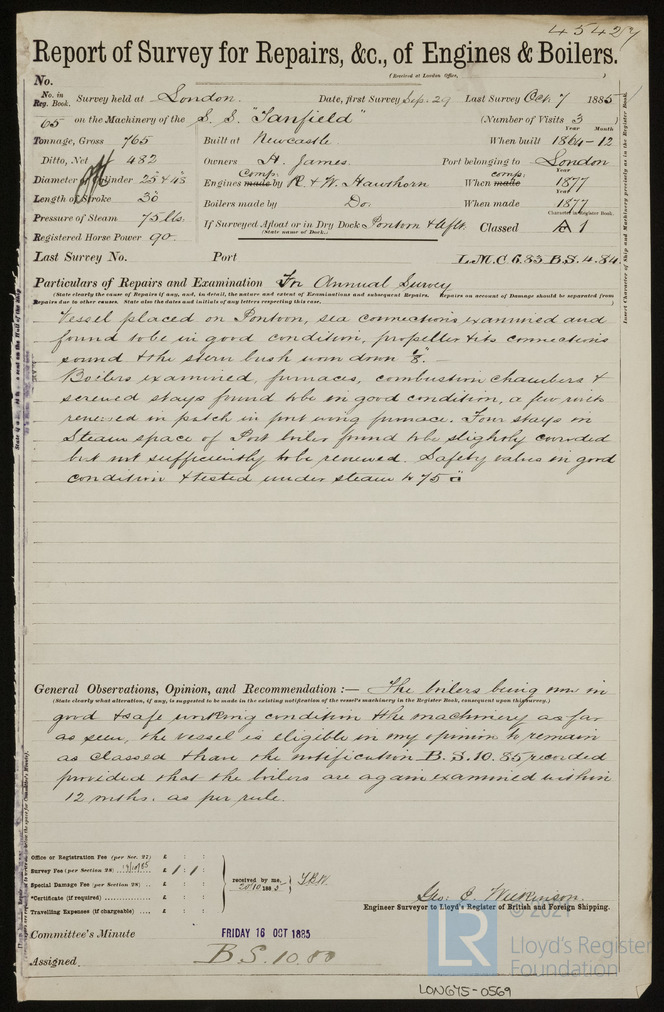 45427
Report of Survey for Repairs, &c., of Engines & Boilers.
(Received at London Office, )
No.
No. in Reg. Book. Survey held at London. Date, first Survey Sep. 29 Last Survey Oct. 7 1885
65 on the Machinery of the S. S. "Tanfield" (Number of Visits 3
Year Month
Tonnage, Gross 765 Built at Newcastle When built 1864-12
Ditto, Net 482 Owners H. James. Port belonging to London
Diameter of Cylinder 25 & 48 Engines made comp. by R. & W. Hawthorn When made comp. 1877
Length of Stroke 30 Boilers made by Do. When made 1877
Pressure of Steam 75 lb. If Surveyed Afloat or in Dry Dock Pontoon & Aflt. Classed A 1
(State name of Dock.) Character in Register Book.
Registered Horse Power 90
Last Survey No. Port L.M.C. 6.83 B.S. 4.84.
Particulars of Repairs and Examination For Annual Survey
(State clearly the cause of Repairs if any, and, in detail, the nature and extent of Examinations and subsequent Repairs. Repairs on account of Damage should be separated from
Repairs due to other causes. State also the dates and initials of any letters respecting this case.)
Vessel placed on Pontoon, sea connections examined and
found to be in good condition, propeller & its connections
sound & the stern bush worn down
Boilers examined, furnaces, combustion chambers &
screwed stays found to be in good condition, a few rivets
renewed in patch in port wing furnace. Four stays in
Steam space of Port boiler found to be slightly corroded
but not sufficiently to be renewed. Safety valves in good
condition & tested under steam to 75
Insert Character of Ship and Machinery precisely as in the Register Book.
General Observations, Opinion, and Recommendation :— The boilers being now in
(State clearly what alteration, if any, is suggested to be made in the existing notification of the vessel's machinery in the Register Book, consequent upon this survey.)
good & safe working condition & the machinery as far
as seen, the vessel is eligible in my opinion to remain
as classed & have the notification B.S. 10.85 recorded
provided that the boilers are again examined within
12 mths. as per rule.
Office or Registration Fee (per Sec. 27) £ : :
Survey Fee (per Section 28) £ 1 : 1 :
Special Damage Fee (per Section 28) £ : :
*Certificate (if required) £ : :
Travelling Expenses (if chargeable) £ : :
received by me,
20/10 1885
Geo: C. Wilkinson.
Engineer Surveyor to Lloyd's Register of British and Foreign Shipping.
Committee's Minute FRIDAY 16 OCT 1885
Assigned B.S. 10.85
© 2021
LR
Lloyd's Register
Foundation
LON675-0569